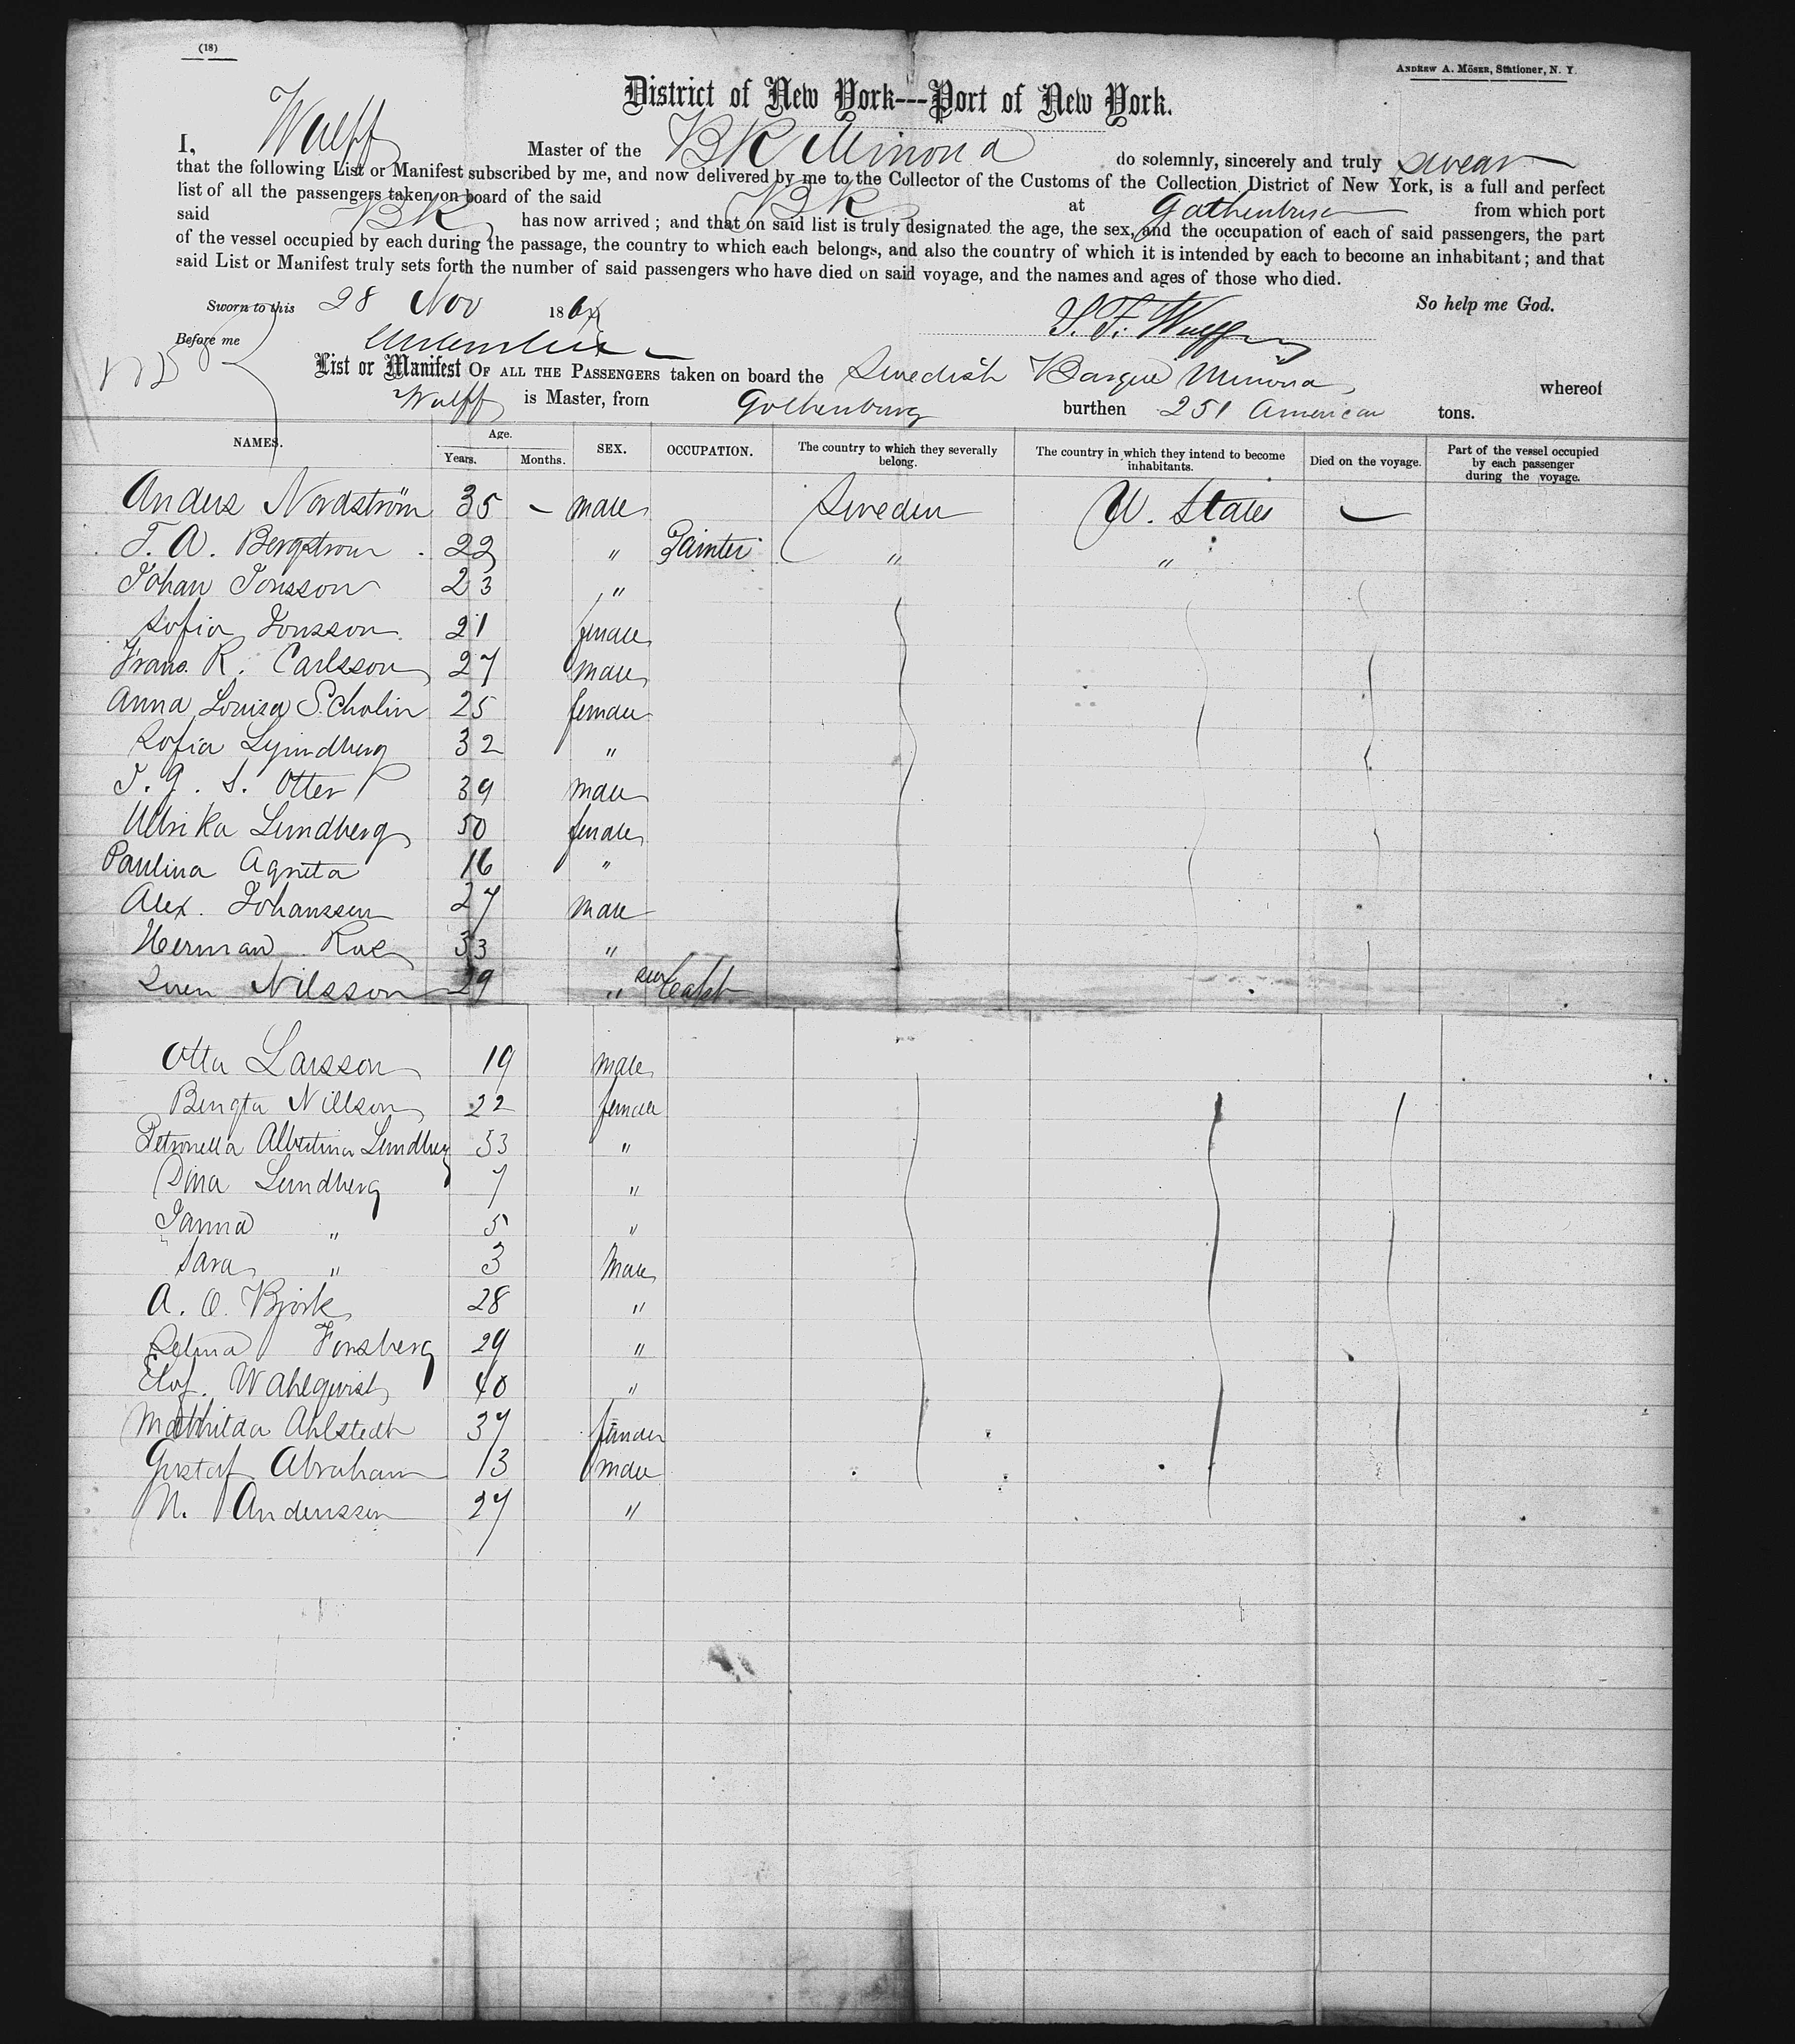 (18)
ANDREW A. MÖSER, Stationer, N. Y.
District of New York---Port of New York.
I, Wulff Master of the BK Minona do solemnly, sincerely and truly swear
that the following List or Manifest subscribed by me, and now delivered by me to the Collector of the Customs of the Collection District of New York, is a full and perfect
list of all the passengers taken on board of the said BK at Gothenburg from which port
said BK has now arrived; and that on said list is truly designated the age, the sex, and the occupation of each of said passengers, the part
of the vessel occupied by each during the passage, the country to which each belongs, and also the country of which it is intended by each to become an inhabitant; and that
said List or Manifest truly sets forth the number of said passengers who have died on said voyage, and the names and ages of those who died.
So help me God.
Sworn to this 28 Nov 186
Before me
Wulff
List or Manifest OF ALL THE PASSENGERS taken on board the Swedish Barque Minona, whereof
Wulff is Master, from Gothenburg burthen 251 American tons.
NAMES. Age. Years. Months. SEX. OCCUPATION. The country to which they severally belong. The country in which they intend to become inhabitants. Died on the voyage. Part of the vessel occupied by each passenger during the voyage.
Anders Nordström 35 - male Sweden U. States
J. A. Bergstrom 22 " Painter " "
Johan Jonsson 23 "
Sofia Jonsson 21 female
Frans. R. Carlsson 27 male
Anna Louisa Scholin 25 female
Sofia 32 "
J. G. S. Otter 39 male
Ulrika Lundberg 50 female
Paulina Agneta 16 "
Alex. Johanssen 27 male
Herman 33 "
Sven Nilsson 29 "
Otto Larsson 19 male
Bengta Nillson 22 female
Petronella Albertina Lundberg 33 "
Dina Lundberg 7 "
Janna " 5 "
Sara " 3 Male
A. O. Bjork 28 "
Selma 29 "
Elof. Wahlquist 40 "
Mathilda Ahlstedt 37 female
Gustaf Abraham 13 male
N. Anderssen 27 "